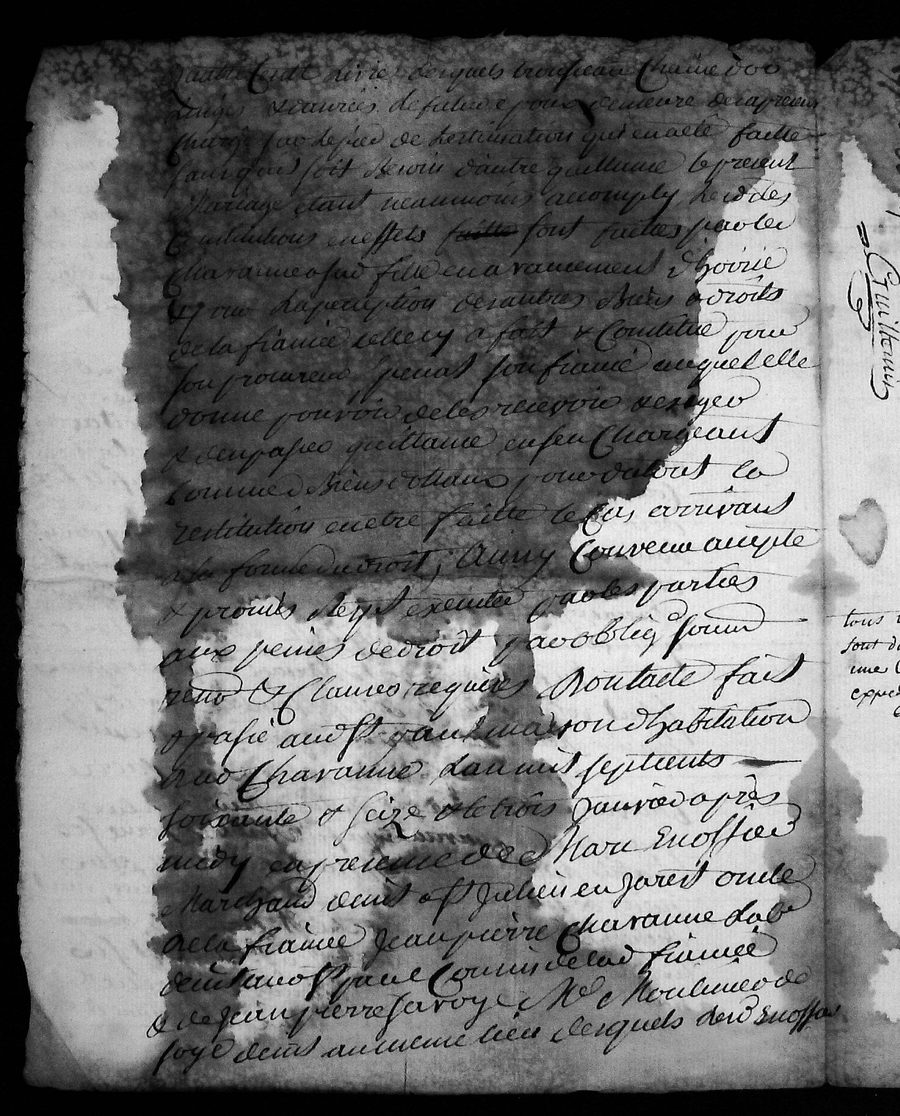 quatre Cent Livres desquels trousseau Chaine d'or
linges & de valeur pour demeure
Charge sur le pied de Lestimation qui en a eté faitte
sans quil soit Besoin d'autre quittance le present
Mariage etant neanmoins accomply Lesd des
Constitutions en effets faitte sont faittes par led
Chavanne a sad fille en avancement d'hoirie
Et pour La perception des autres Biens & droits
de la fiancée celle cy a fait & Constitué pour
son procureur special son fiancé auquel elle
donne pouvoir de les recevoir & exiger
& den passer quittance en sen Chargeant
Comme Biens dottaux pour du tout la
restitution en etre faitte le Cas arrivant
a la forme du droit; Ainsy Convenu accepté
& promis Etre executé par les parties
aux peines de droit par oblig soum
renon & Clauses requises Dont acte fait
& passé aud St paul maison d'habitation
dud Chavanne Lan mil sept cents
soixante & seize & le trois Janvier après
midy en presence de Marc Enossier
Marchand demt a St Julien en Jarest oncle
de la fiancée Jean pierre Chavanne Lab
demt aud St paul Cousin de lad fiancée
& de Jean pierre Savoye Md Moulinier de
soye demt au meme lieu desquels led Enossier
Guillemin
tous
sont d
une
exped